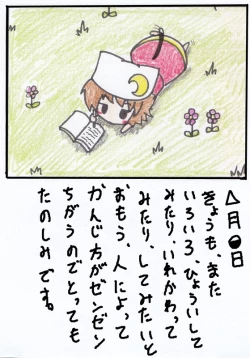 △月●日
きょうも、また
いろいろ、ひょういして
みたり、いれかわって
みたり、してみたいと
おもう、人によって
かんじ方がゼンゼン
ちがうのでとっても
たのしみです。